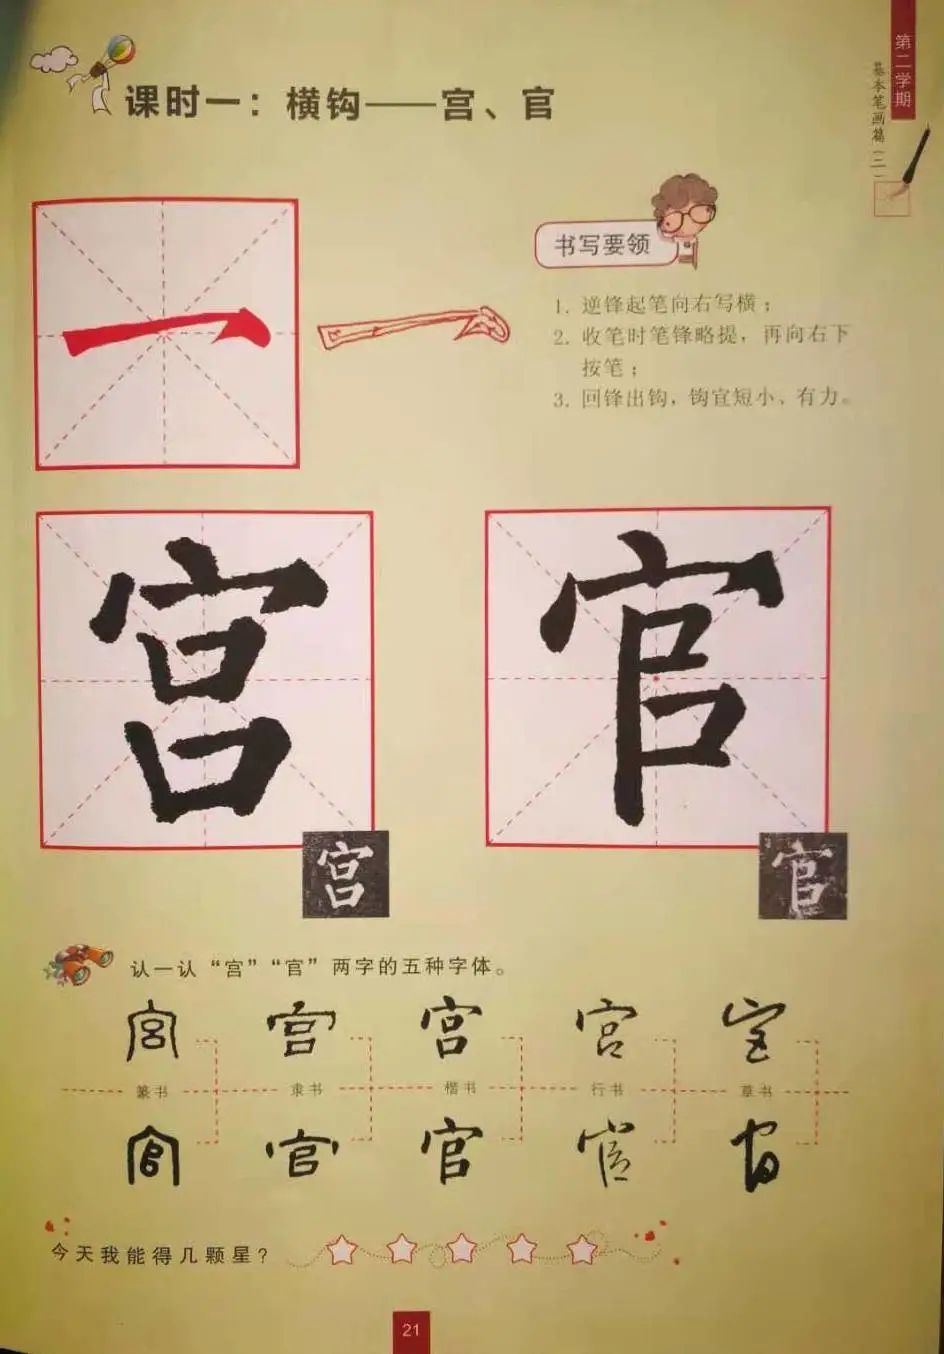 第二学期
基本笔画篇（二）
课时一：横钩——宫、官
书写要领
1. 逆锋起笔向右写横；
2. 收笔时笔锋略提，再向右下
按笔；
3. 回锋出钩，钩宜短小、有力。
宫 官
宫 官
认一认“宫”“官”两字的五种字体。
宫 宫 宫 宫 宫
篆书 隶书 楷书 行书 草书
官 官 官 官 官
今天我能得几颗星？
21